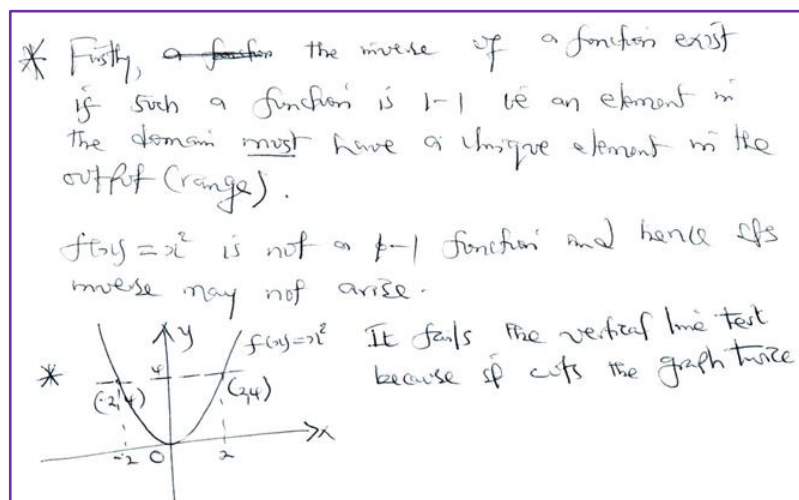 * Firstly, a function the inverse of a function exist
if such a function is 1-1 ie an element in
the domain must have a unique element in the
output (range).
f(x) = x² is not a 1-1 function and hence its
inverse may not arise.
y f(x)=x² It fails the vertical line test
* 4 because it cuts the graph twice
(-2,4) (2,4)
x
-2 0 2